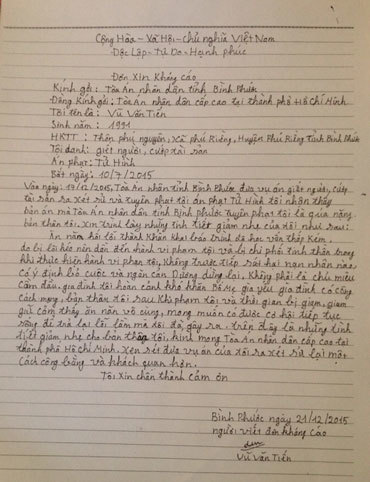 Cộng Hòa - Xã Hội - Chủ nghĩa Việt Nam
Độc Lập - Tự Do - Hạnh phúc
Đơn Xin Kháng Cáo
Kính gởi: Tòa An nhân dân tỉnh Bình Phước
Đồng Kính gởi: Tòa An nhân dân cấp cao tại thành phố Hồ Chí Minh
Tôi tên là: Vũ Văn Tiến
Sinh năm: 1991
HKTT: Thôn phú nguyên, xã phú Riềng, Huyện Phú Riềng Tỉnh Bình Phước
Tội danh: giết người, cướp tài sản
Án phạt: Tử Hình
Bắt ngày: 10/7/2015
Vào ngày: 17/12/2015, Tòa An nhân dân tỉnh Bình Phước đưa vụ án giết người, cướp
tài sản ra xét xử và tuyên phạt tôi án phạt Tử Hình tôi nhận thấy
bản án mà Tòa An nhân dân tỉnh Bình phước tuyên phạt tôi là quá nặng
bản thân tôi. Xin trình bày những tình tiết giảm nhẹ của tôi như sau:
Ăn năn hối lỗi thành khẩn khai báo trình độ học vấn thấp kém,
do bị lôi kéo nên dẫn đến hành vi phạm tội và bị chi phối tinh thần trong
khi thực hiện hành vi phạm tội, không trực tiếp sát hại nạn nhân nào
có ý định bỏ cuộc và ngăn cản Dương dừng lại, không phải là chủ mưu
cầm đầu, gia đình tôi hoàn cảnh khó khăn Bố Mẹ già yếu gia đình có công
Cách mạng, bản thân tôi sau khi phạm tội và thời gian bị giam, giam
giữ cảm thấy ăn năn vô cùng, mong muốn có được cơ hội tiếp tục
sống để trả lại lỗi lầm mà tôi đã gây ra, trên đây là những tình
tiết giảm nhẹ cho bản thân tôi, kính mong Tòa An nhân dân cấp cao tại
thành phố Hồ Chí Minh. xem xét đưa vụ án của tôi ra xét xử lại một
cách công bằng và khách quan hơn.
Tôi Xin chân thành Cảm ơn
Bình Phước ngày 21/12/2015
người viết đơn Kháng Cáo
Vũ Văn Tiến